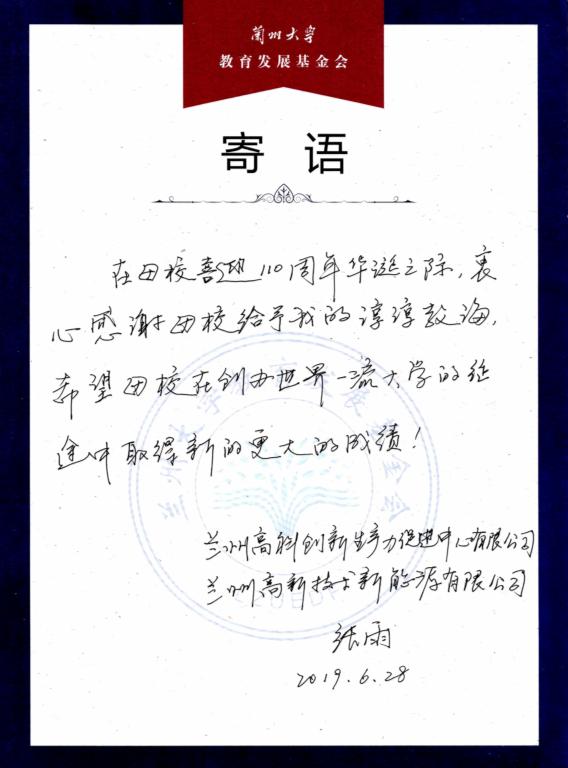 兰州大学
教育发展基金会
寄 语
在母校喜迎110周年华诞之际，衷
心感谢母校给予我的谆谆教诲，
希望母校在创办世界一流大学的征
途中取得新的更大的成绩！
兰州高科创新生产力促进中心有限公司
兰州高新技术新能源有限公司
张雨
2019.6.28
兰州大学教育发展基金会